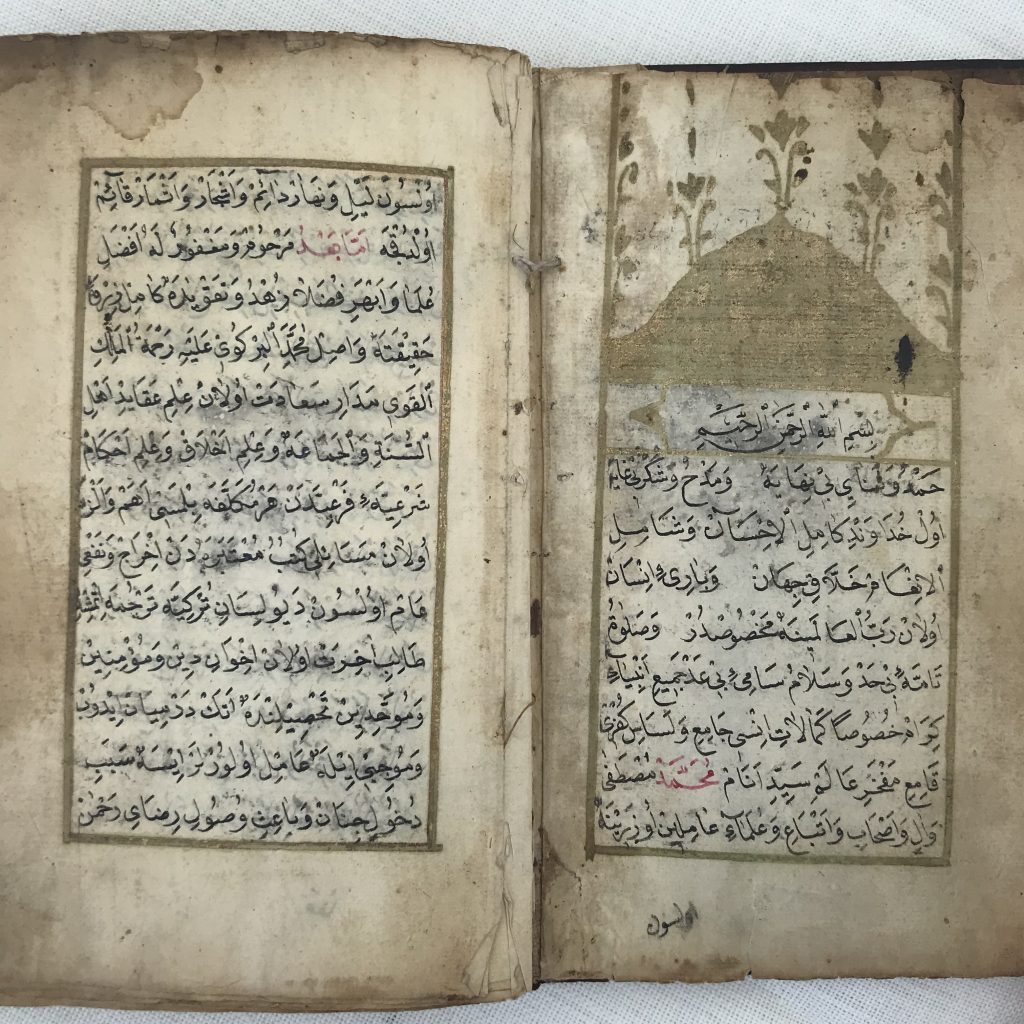 بِسْمِ اللّٰهِ الرَّحْمٰنِ الرَّحِيْمِ
حَمْدُ وَثَنَايِ بِى نِهَايَهْ وَمَدْحُ وَشُكْرِ بِى غَايَهْ
اُولْ خُدَاوَنْدِ كَامِلِ الْاِحْسَانْ وَشَامِلِ
الْاِنْعَامْ خَلَّاقِ جِهَانْ وَبَارِىءِ اِنْسَانْ
اُولَانْ رَبُّ الْعَالَمِينَهْ مَخْصُوصْدُرْ وَصَلٰوةُ
تَامَّهءِ بِى حَدْ وَسَلَامُ سَامِىءِ بِى عَدْ جَمِيعِ اَنْبِيَاءِ
كِرَامْ خُصُوصًا كَمَالَاتِ اِنْسِى جَامِعِ وَاَسَاسِ كُفْرِى
قَامِعِ مَفْخَرِ عَالَمْ سَيِّدِ اَنَامْ مُحَمَّدْ مُصْطَفَى
وَاٰلِ وَاَصْحَابِ وَاَتْبَاعِ وَعُلَمَاءِ عَامِلِينْ اُوزِرِينَهْ
اولسون
اُولْسُونْ لَيْلِ وَنَهَارْ دَائِمْ وَاَشْجَارْ وَاَثْمَارْ قَائِمْ
اُولْدُقْجَهْ اَمَّا بَعْدُ مَرْحُومْ وَمَغْفُورٌ لَهُ اَفْضَلِ
عُلَمَا وَاَبْهَرِ فُضَلَا زُهْدُ وَتَقْوٰيدَهْ كَامِلْ
حَقِيقَتَهْ وَاصِلْ مُحَمَّدَ الْبِرْكَوِىْ عَلَيْهِ رَحْمَةُ الْمَلِكِ
الْقَوِى مَدَارِ سَعَادَتْ اُولَانْ عِلْمِ عَقَايِدِ اَهْلِ
السُّنَّةِ وَالْجَمَاعَهْ وَعِلْمِ اَخْلَاقْ وَعِلْمِ اَحْكَامْ
شَرْعِيَّهءِ فَرْعِيَّهدَنْ هَرْ مُكَلَّفَهْ بِلْمَسِى اَهَمْ وَاَلْزَمْ
اُولَانْ مَسَائِلِى كُتُبُ مُعْتَبَرَهدَنْ اِخْرَاجْ وَنَفْعِى
عَامْ اُولْسُونْ دَيُو لِسَانِ تُرْكِيَهْ تَرْجَمَهْ اِتْمِشْدِرْ
طَالِبِ اٰخِرَتْ اُولَانْ اِخْوَانِ دِينْ وَمُؤْمِنِينْ
وَمُوَحِّدِينْ تَحْصِيلِنْدَهْ اَنَكْ دَرْمِيَانْ اِيدُوبْ
وَمُوجَبِى اِيلَهْ عَامِلْ اُولُورْلَرْ اِيسَهْ سَبَبِ
دُخُولِ جِنَانْ وَبَاعِثِ وُصُولِ رِضَايِ رَحْمٰنْ